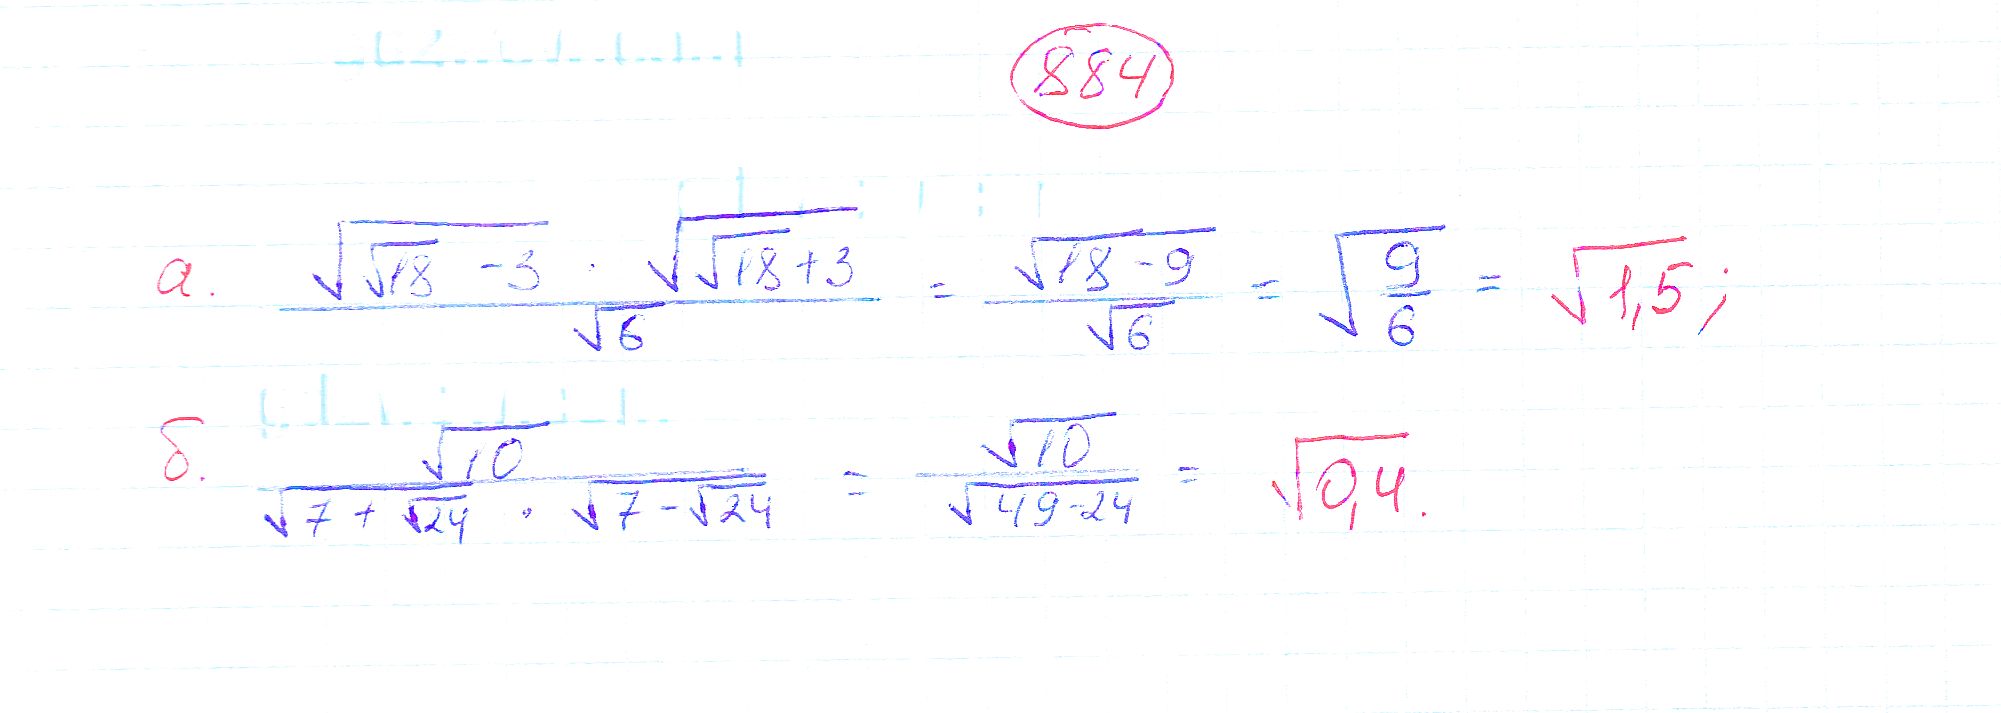 884
а. √(√18 - 3) · √(√18 + 3) / √6 = √(18 - 9) / √6 = √(9/6) = √1,5;
б. √10 / (√(7 + √24) · √(7 - √24)) = √10 / √(49 - 24) = √0,4.